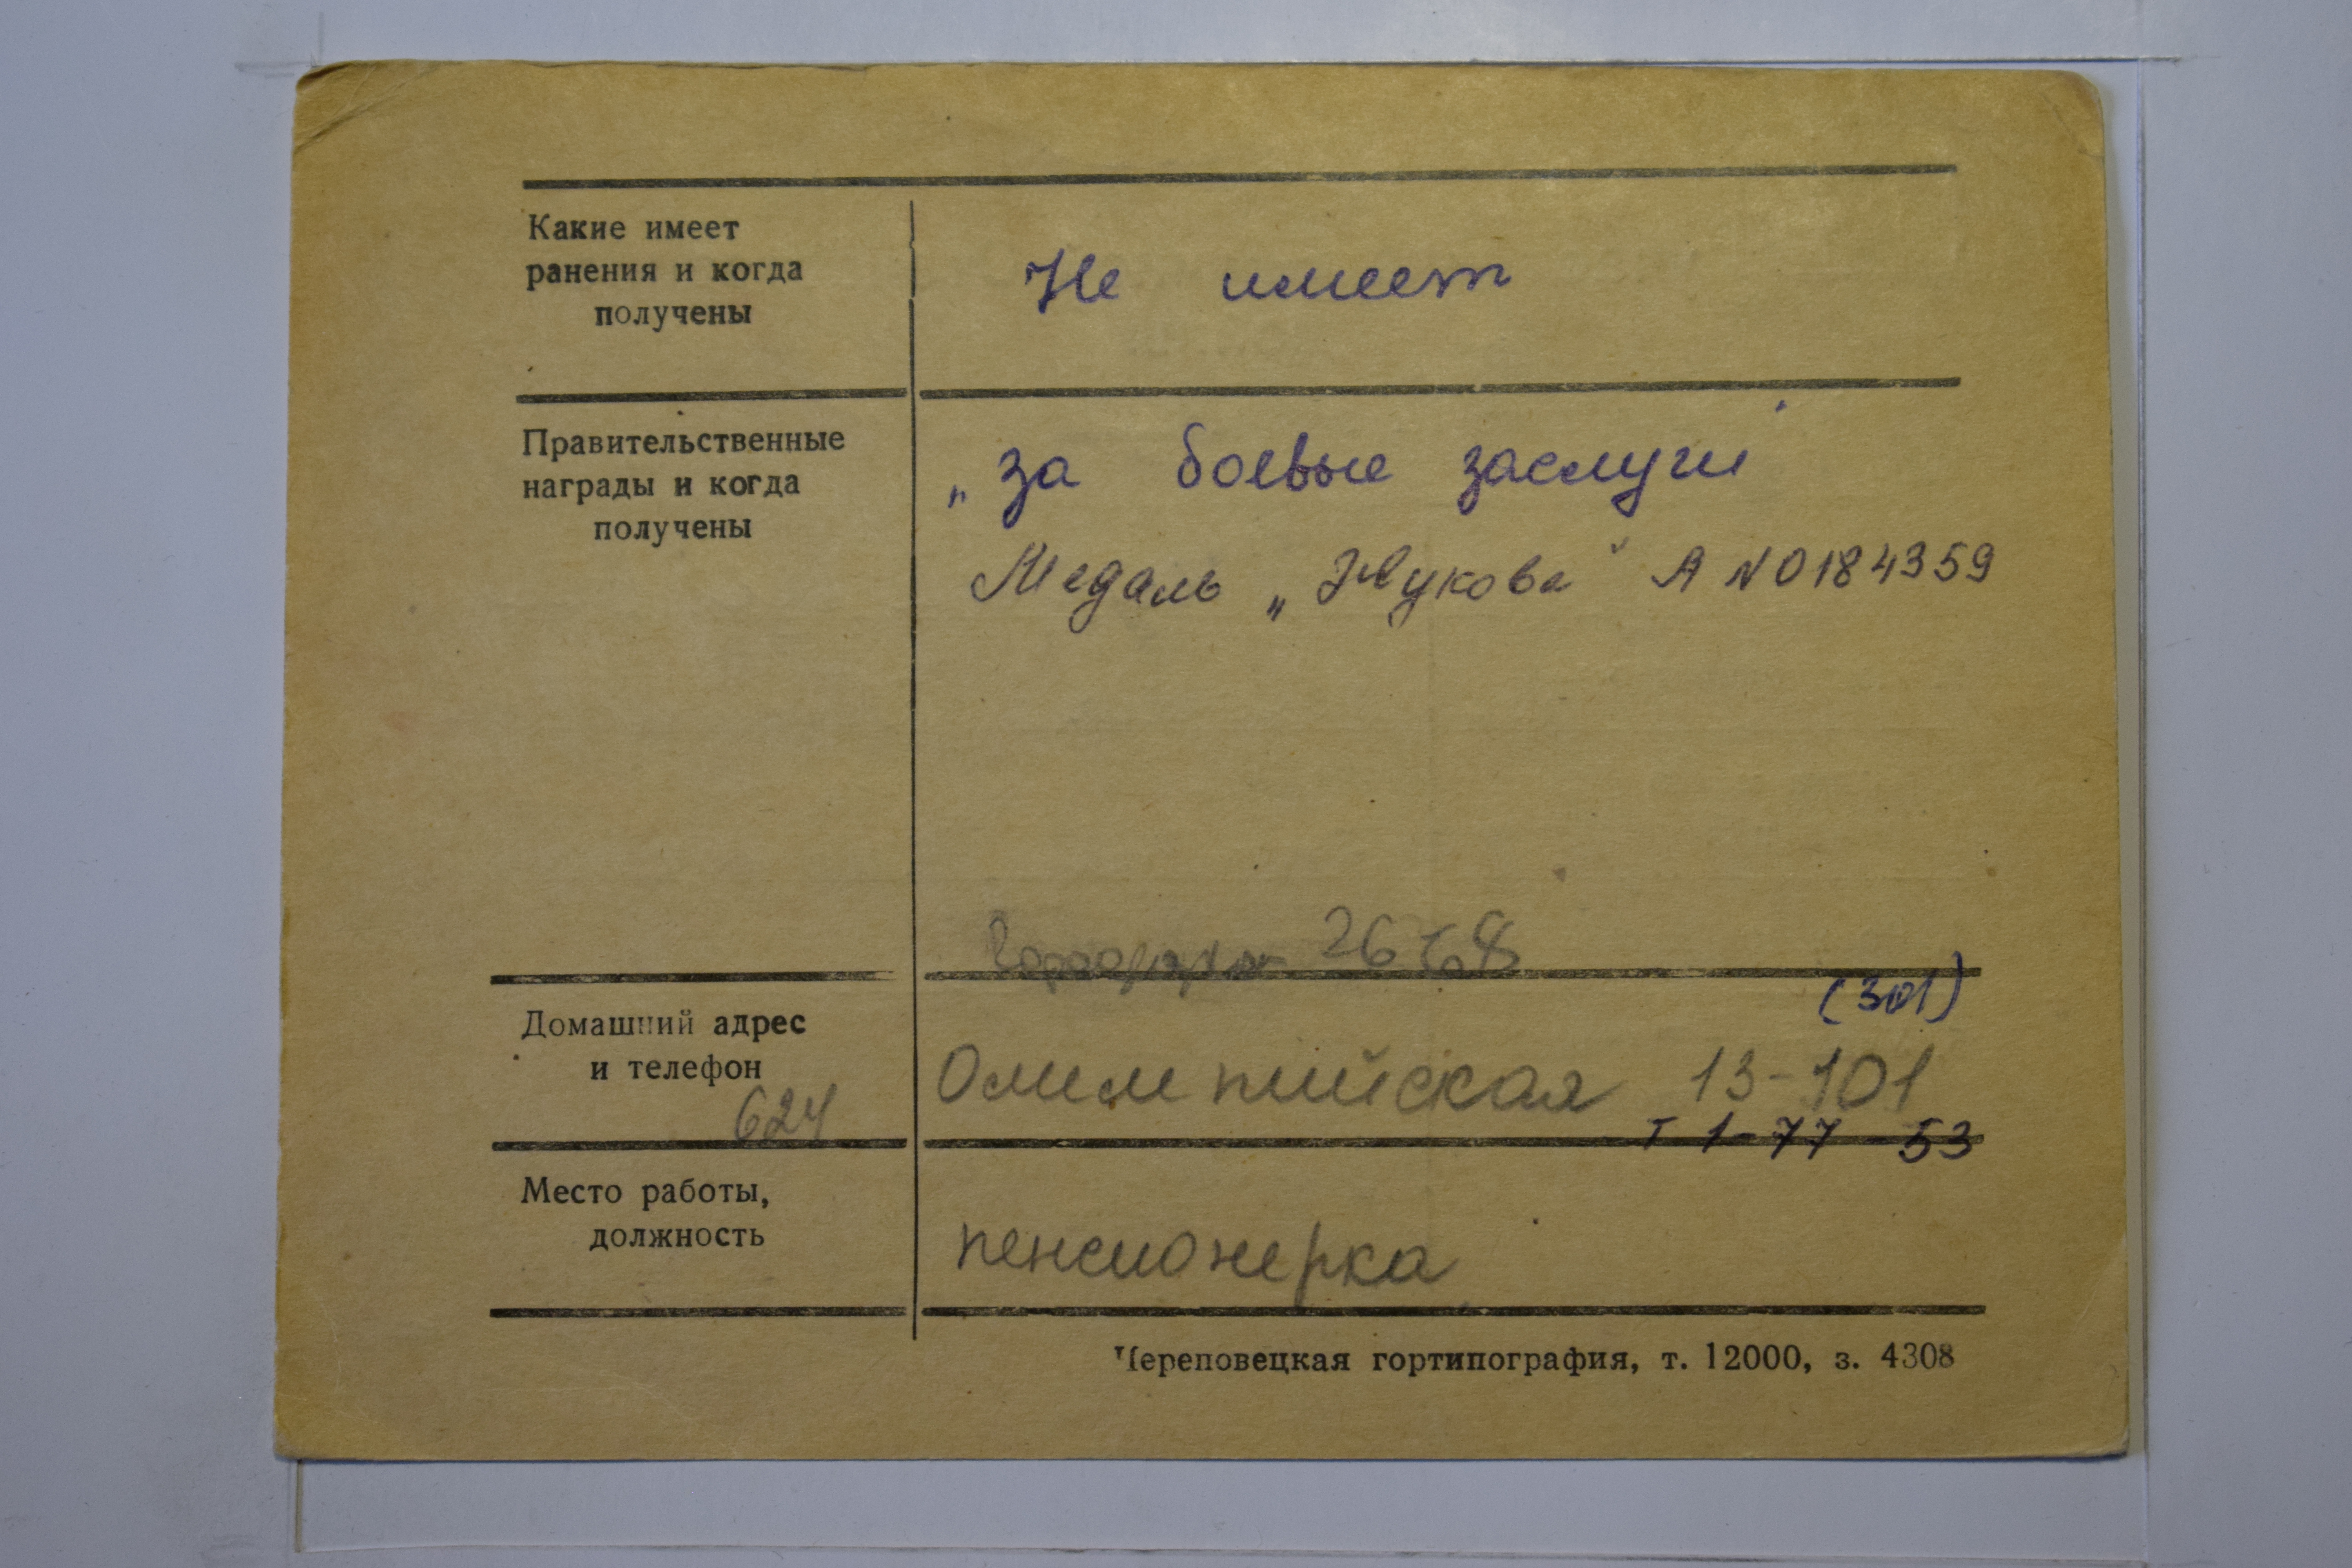 Какие имеет
ранения и когда
получены
Не имеет
Правительственные
награды и когда
получены
„за боевые заслуги"
Медаль „Жукова" А № 0184359
(301)
Домашний адрес
и телефон
624
Олимпийская 13-101
т 1-77-53
Место работы,
должность
пенсионерка
Череповецкая гортипография, т. 12000, з. 4308